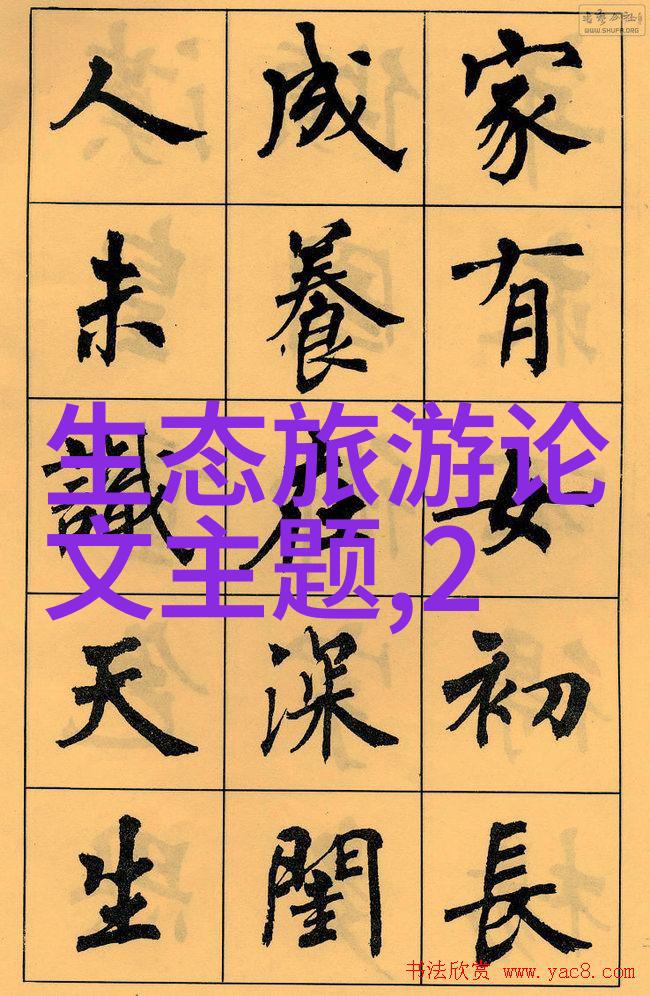 WWW.SHUFA.ORG
家有女初長
成養在深閨
人未識天生
生态旅游论
文主题,2
书法欣赏 www.yac8.com